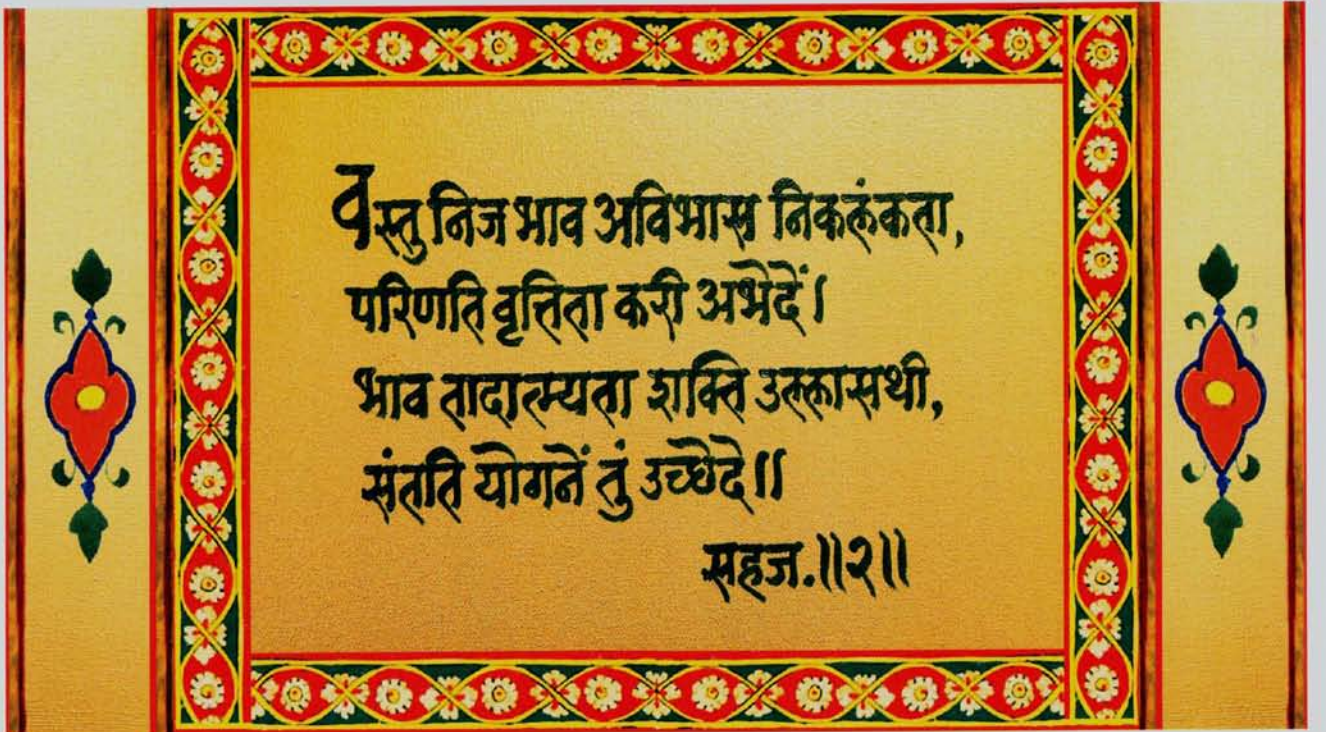 वस्तु निज भाव अविभास निकलंकता,
परिणति वृत्तिता करी अभेदें।
भाव तादात्म्यता शक्ति उल्लासथी,
संतति योगनें तुं उच्छेदे॥
सहज.॥२॥